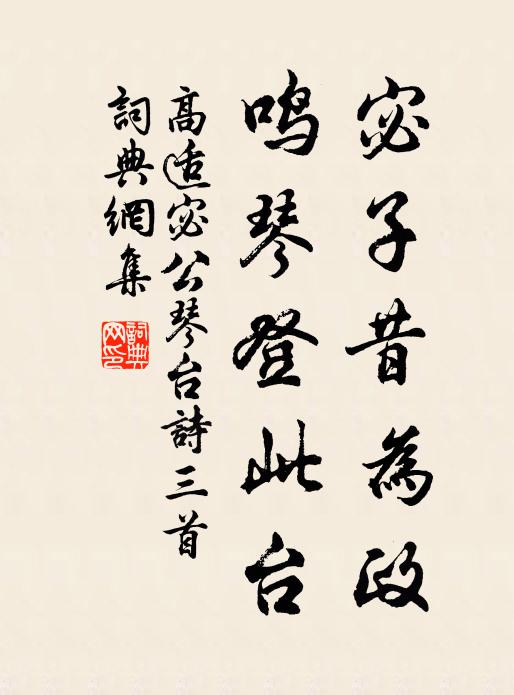 宓子昔為政
鳴琴登此台
高适宓公琴台詩三首
詞典網集
詞典网印